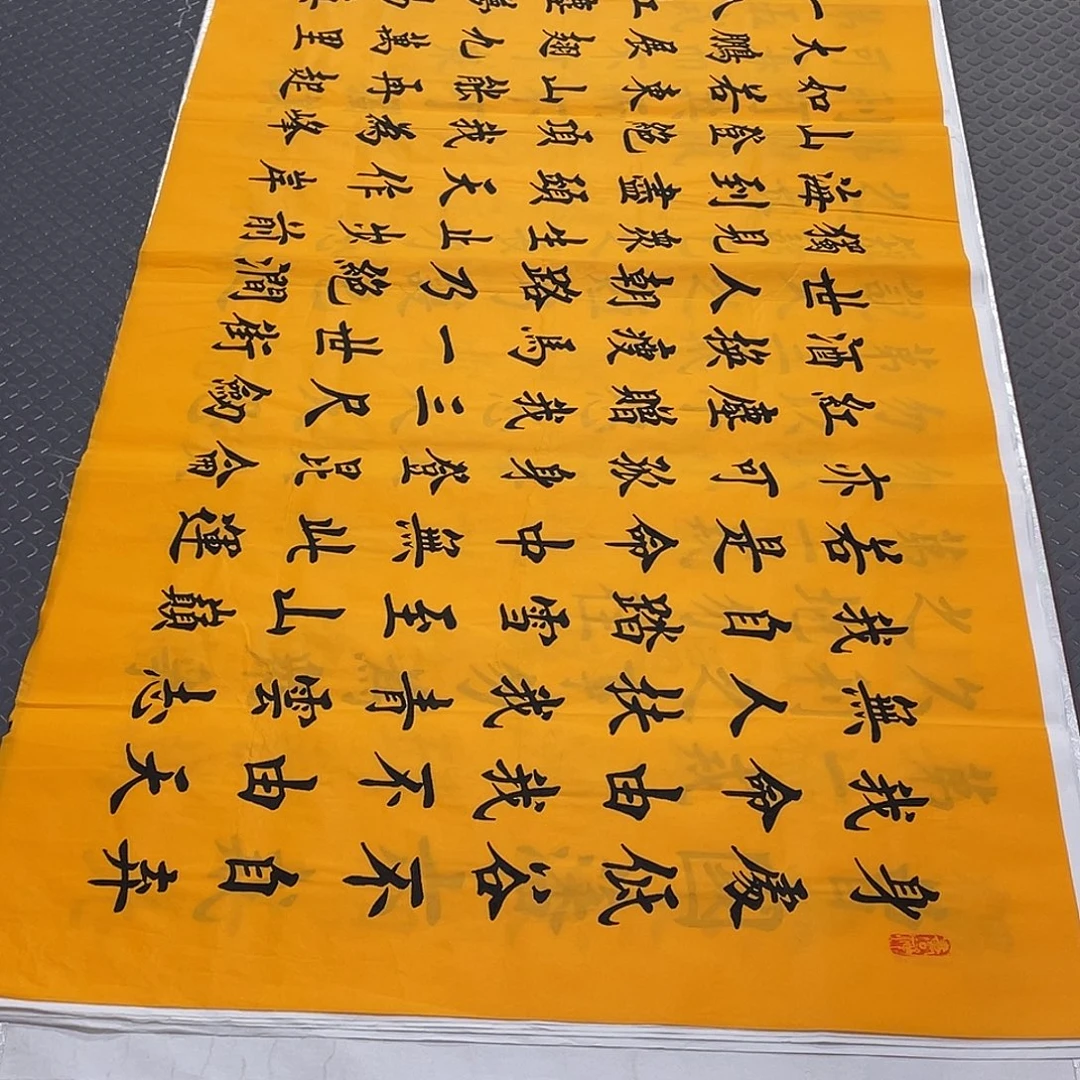 身處低谷不自弃
我命由我不由天
無人扶我青雲志
我自踏雪至山巔
若是命中無此運
亦可孤身登昆侖
紅塵贈我三尺劍
酒換瘦馬一世街
世人朝路乃絕澗
獨見衆生止步前
海到盡頭天作岸
山登絕頂我為峰
如若東山能再起
大鵬展翅九萬里
一